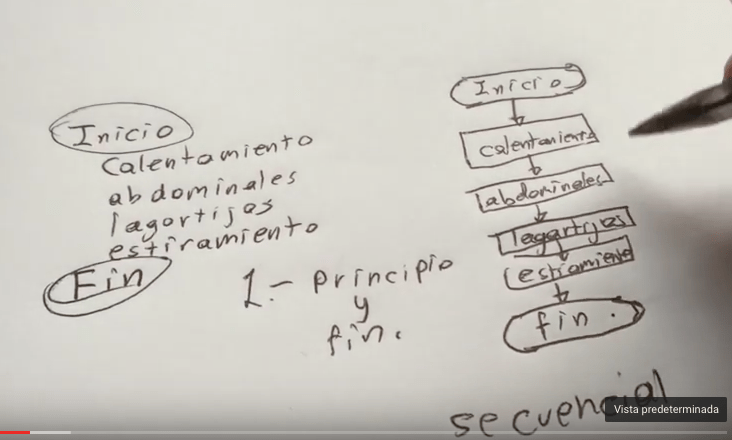 Inicio
calentamiento
abdominales
lagortijos
estiramiento
Fin
1.- principio
y
fin.
Inicio
calentamiento
abdominales
lagartijas
estiramiento
fin.
secuencial
Vista predeterminada